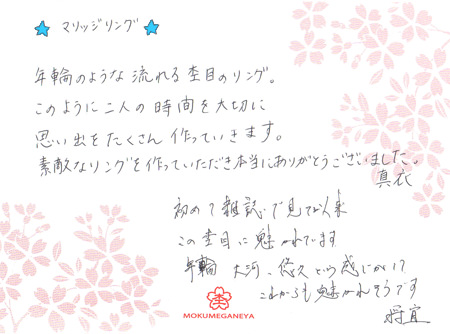 マリッジリング
年輪のような流れる杢目のリング。
このように二人の時間を大切に
思い出をたくさん作っていきます。
素敵なリングを作っていただき本当にありがとうございました。
真衣
初めて雑誌で見て以来
この杢目に魅かれています
年輪 大河、悠久という感じがして
これからも魅かれそうです
将宜
MOKUMEGANEYA